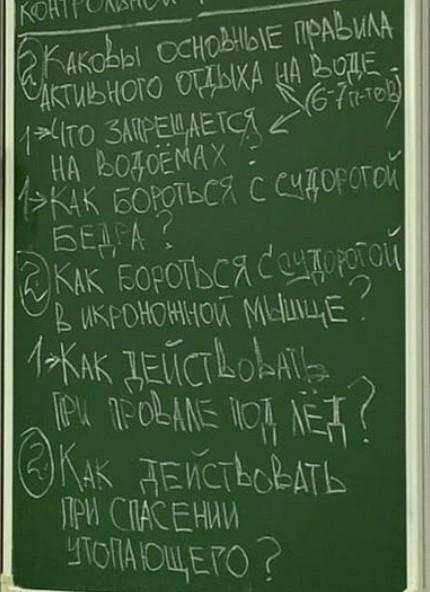 КОНТРОЛЬНОЙ
② КАКОВЫ ОСНОВНЫЕ ПРАВИЛА
АКТИВНОГО ОТДЫХА НА ВОДЕ
(6-7 п-тов)
1→ЧТО ЗАПРЕЩАЕТСЯ
НА ВОДОЁМАХ?
1→КАК БОРОТЬСЯ С СУДОРОГОЙ
БЕДРА?
② КАК БОРОТЬСЯ С СУДОРОГОЙ
В ИКРОНОЖНОЙ МЫШЦЕ?
1→КАК ДЕЙСТВОВАТЬ
ПРИ ПРОВАЛЕ ПОД ЛЁД?
② КАК ДЕЙСТВОВАТЬ
ПРИ СПАСЕНИИ
УТОПАЮЩЕГО?